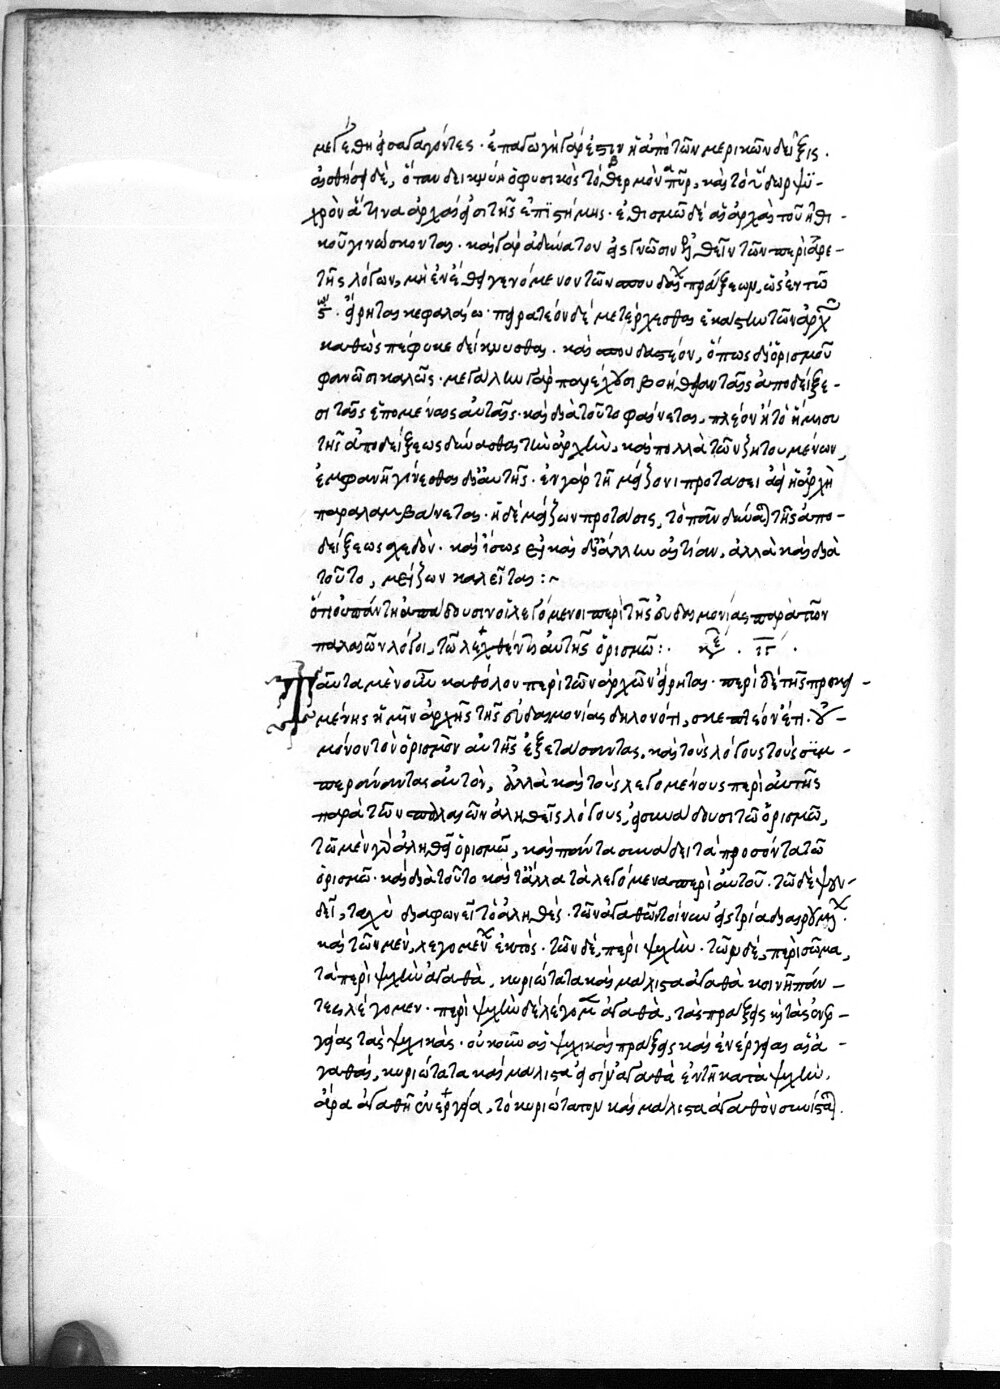 μεγέθη εἰσαγαγόντες· ἐπαγωγὴ γάρ ἐστιν ἡ ἀπὸ τῶν μερικῶν δεῖξις.
αἰσθήσει δὲ, ὅταν δεικνύη ὁ φυσικὸς τὸ θερμὸν πῦρ, καὶ τὸ ὕδωρ ψυ-
χρὸν ἅτινα ἀρχαί εἰσι τῆς ἐπιστήμης· ἐθισμῶ δέ αἱ ἀρχαὶ τοῦ ἠθι-
κοῦ γινώσκονται· καὶ γὰρ ἀδύνατον εἰς γνῶσιν ἐλθεῖν τῶν περὶ ἀρε-
τῆς λόγων, μὴ ἐν ἔθει γενόμενον τῶν σπουδαίων πράξεων, ὡς ἐν τῶ
ϛ· εἴρηται κεφαλαίω· πειρατέον δὲ μετέρχεσθαι ἑκάστην τῶν ἀρχῶν
καθὼς πέφυκε δείκνυσθαι· καὶ σπουδαστέον, ὅπως δι' ὁρισμοῦ
φανῶσι καλῶς· μεγάλην γὰρ παρέχουσι βοήθειαν ταῖς ἀποδείξε-
σι ταῖς ἑπομέναις αὐταῖς· καὶ διὰ τοῦτο φαίνεται, πλέον ἢ τὸ ἥμισυ
τῆς ἀποδείξεως δύνασθαι τὴν ἀρχὴν, καὶ πολλὰ τῶν ζητουμένων,
ἐμφανῆ γίνεσθαι δι' αὐτῆς· ἐν γὰρ τῆ μείζονι προτάσει ἀεὶ ἡ ἀρχὴ
παραλαμβάνεται· ἡ δὲ μείζων πρότασις, τὸ πᾶν δύναται τῆς ἀπο-
δείξεως σχεδὸν· καὶ ἴσως καὶ δι' ἄλλην αἰτίαν, ἀλλὰ καὶ διὰ
τοῦτο, μείζων καλεῖται:~
ὅτι οἱ πάντη ἀπάδουσιν οἱ λεγόμενοι περὶ τῆς εὐδαιμονίας παρὰ τῶν
παλαιῶν λόγοι, τῶ λεχθέντι αὐτῆς ὁρισμῶ:· κεφ. ιγ.
Ταῦτα μὲν οὖν καθόλου περὶ τῶν ἀρχῶν εἴρηται· περὶ δὲ τῆς προκει-
μένης ἡμῖν ἀρχῆς τῆς εὐδαιμονίας δηλονότι, σκεπτέον ἐστί· οὐ
μόνον τὸν ὁρισμὸν αὐτῆς ἐξετάσαντας, καὶ τοὺς λόγους τοὺς συμ-
περαίναντας αὐτὸν, ἀλλὰ καὶ τοὺς λεγομένους περὶ αὐτῆς
παρὰ τῶν παλαιῶν ἀληθεῖς λόγους, εἰ συνάδουσι τῶ ὁρισμῶ,
τῶ μὲν γὰρ ἀληθεῖ ὁρισμῶ, καὶ πάντα συνάδει τὰ προσόντα τῶ
ὁρισμῶ· καὶ διὰ τοῦτο καὶ τἆλλα τὰ λεγόμενα περὶ αὐτοῦ· τῶ δὲ ψευ-
δεῖ, ταχὺ διαφωνεῖ τὸ ἀληθές· τῶν ἀγαθῶν τοίνυν εἰς τρία διαιρουμένων·
καὶ τῶν μὲν, λεγομένων ἐκτός· τῶν δὲ, περὶ ψυχὴν· τῶν δὲ, περὶ σῶμα,
τὰ περὶ ψυχὴν ἀγαθὰ, κυριώτατα καὶ μάλιστα ἀγαθὰ κοινῆ πάν-
τες λέγομεν· περὶ ψυχὴν δὲ λέγομεν ἀγαθὰ, τὰς πράξεις καὶ τὰς ἐνερ-
γείας τὰς ψυχικάς· οὐκοῦν αἱ ψυχικαὶ πράξεις καὶ ἐνέργειαι αἱ ἀ-
γαθαὶ, κυριώτατα καὶ μάλιστα εἰσὶν ἀγαθὰ ἐν τῆ κατὰ ψυχὴν.
ἄρα ἀγαθῆ ἐνεργεία, τὸ κυριώτατον καὶ μάλιστα ἀγαθὸν συνίσταται.